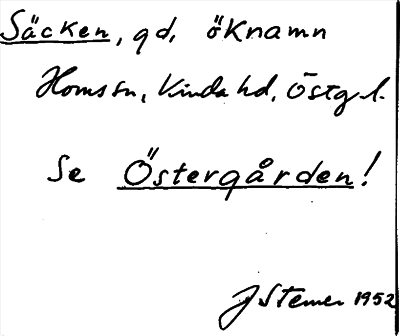 Säcken, gd, öknamn
Horns sn, Kinda hd, Östg. l.
Se Östergården!
J Stemer 1952